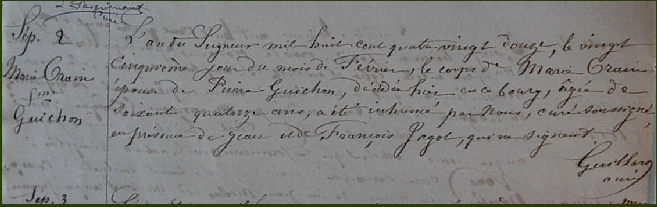 Curé
Sép. 2
Marie Crain
fme
Guichon
L'an du Seigneur mil huit cent quatre vingt douze, le vingt
cinquième jour du mois de Février, le corps de Marie Crain
épouse de Pierre Guichon, décédée hier en ce bourg, âgée de
soixante quatorze ans, a été inhumé par Nous, curé soussigné,
en présence de Jean et de François Jagot, qui ne signent
curé
Sép. 3